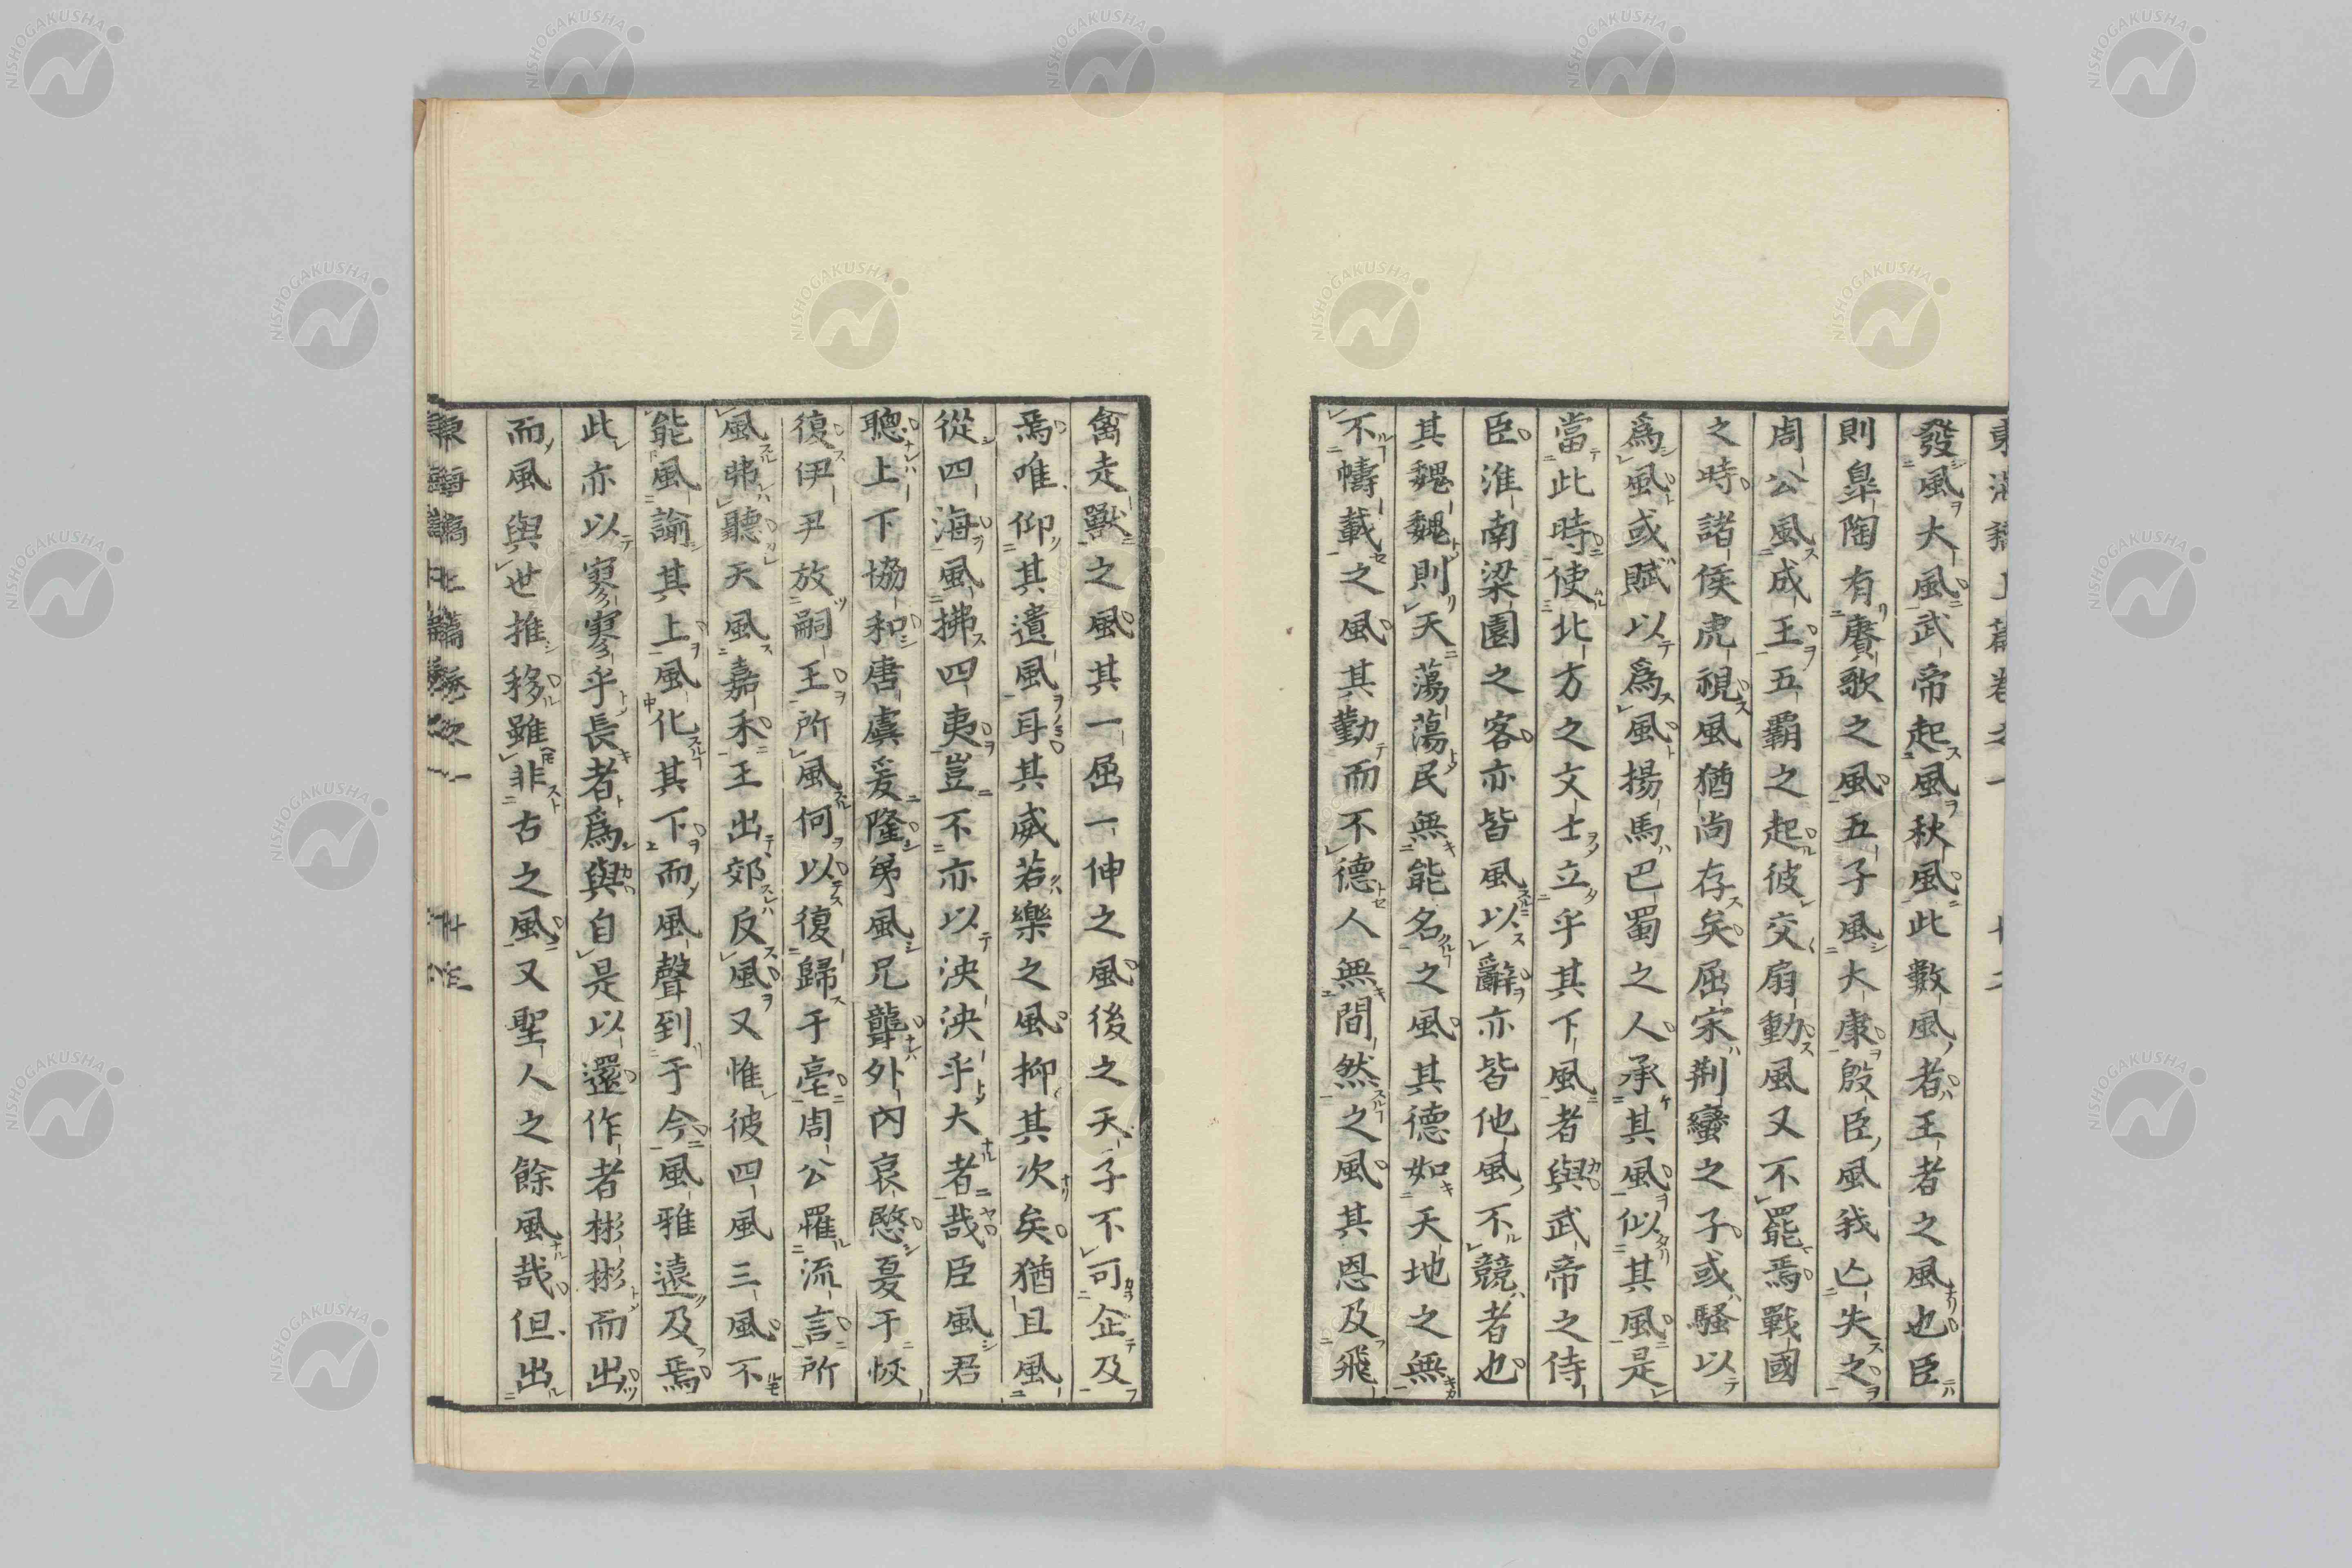 發風大風武帝起風秋風此數風者王者之風也臣
則皐陶有賡歌之風五子風大康殷臣風我亡失之
周公風成王五霸之起彼交扇動風又不罷焉戰國
之時諸侯虎視風猶尚存矣屈宋荆蠻之子或騷以
爲風或賦以爲風揚馬巴蜀之人承其風似其風是
當此時使北方之文士立乎其下風者與武帝之侍
臣淮南梁園之客亦皆風以辭亦皆他風不競者也
其魏魏則天蕩蕩民無能名之風其德如天地之無
不幬載之風其勤而不德人無間然之風其恩及飛
禽走獸之風其一屈一伸之風後之天子不可企及
焉唯仰其遺風耳其威若樂之風抑其次矣猶且風
從四海風拂四夷豈不亦以泱泱乎大者哉臣風君
聰上下協和唐虞爰隆弟風兄聾外內哀愍憂于恔
復伊尹放嗣王所風何以復歸于亳周公罹流言所
風弗聽天風嘉禾王出郊反風又惟彼四風三風不
能風諭其上風化其下而風聲到于今風雅遠及焉
此亦以寥寥乎長者爲與自是以還作者彬彬而出
而風與世推移雖非古之風又聖人之餘風哉但出
NISHOGAKUSHA